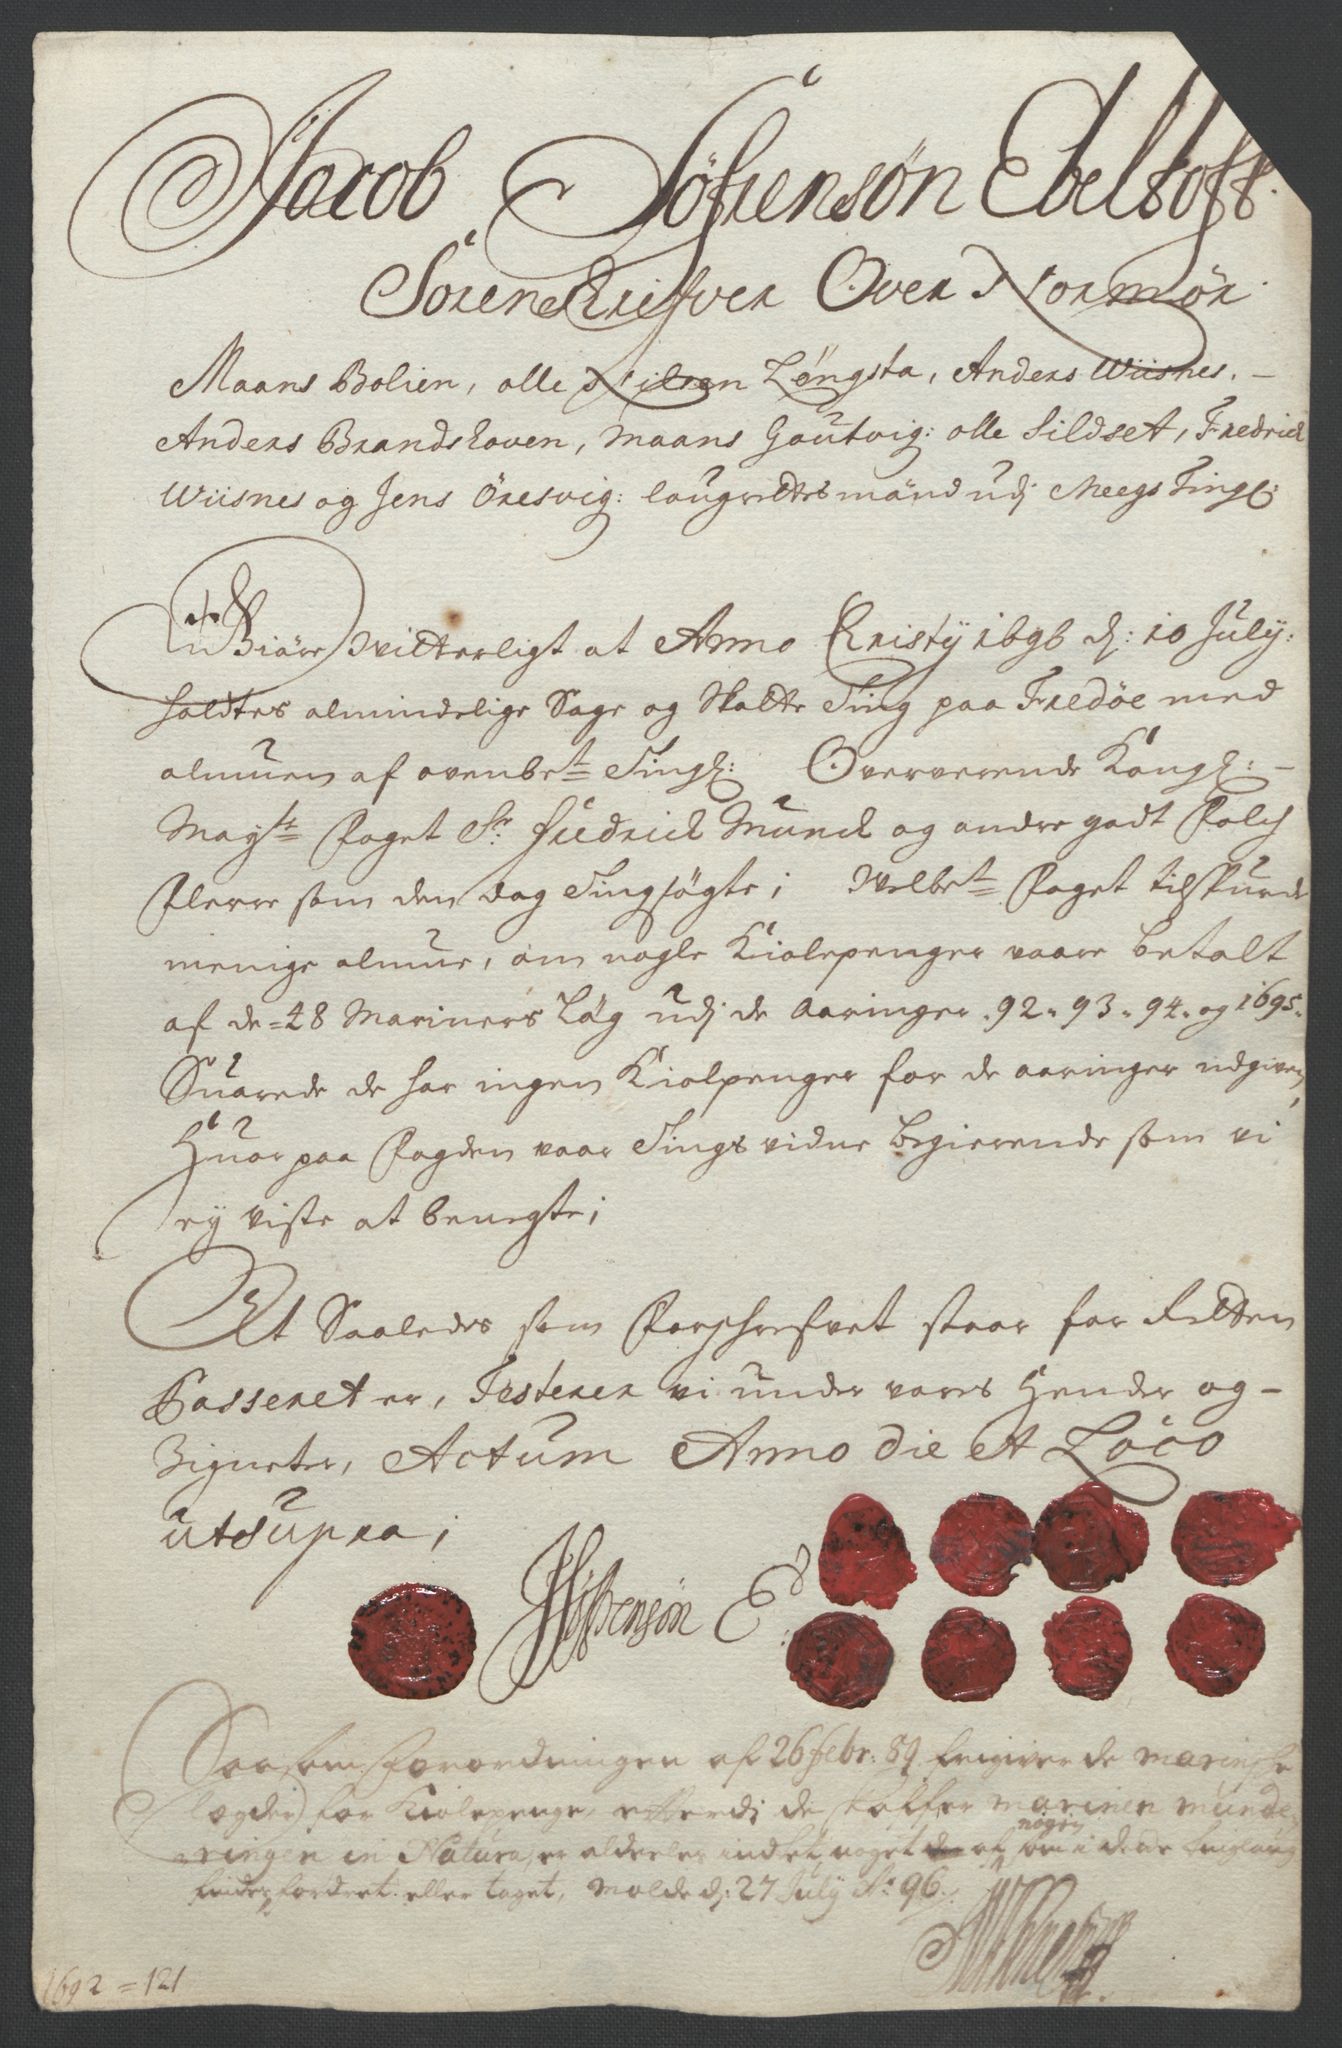 Jacob Söfrensøn Ebeltoft
Sorenskrifver Over Normör
Maans Bolien, olle Nilsen Löngsta, Anders Wiisnes,
Anders Brandskoven, maans Gautvig: olle Sildset, Fredrick
Wiisnes og Jens Öresvig: laugrettes mænd udj Meegs Tingl:
Giöre Witterligt at Anno Christy 1696 d: 10 July:
holdtes almindelige Sage og Skatte Ting paa Fredöe med
almuen af ovenbete Tingl: Oververende Kongl:
Mayts Foget Sr. Fredrick Munck og andre godt Folch
flerre som den dag Tingsögte; Welbete Foget tilspurde
menige almue, om nogle Kiolepenger vaare betalt
af de 48 Mariners Läg udj de Aaringer 92, 93, 94, og 1695,
Suarede de har ingen Kiolpenger for de aaringer udgiven,
Huor paa Fogden vaar Tings vidne begierende som vi
ey viste at benegte;
At Saaledes som forschrefvet staar for Retten
Passeret er, Testerer vi under vores Hender og
Zigneter, Actum Anno die et Loco
utsupra;
JSöfrensön E
Saasom forordningen af 26 febr: 89 frigiver de marinske
lægder for Kiolepenge, efterdj de skaffer marinen munde
ringen in Natura, er alderles indtet noget af nogen i dette
fordret eller taget, Molde d: 27 July Ao 96.
1692 = 121